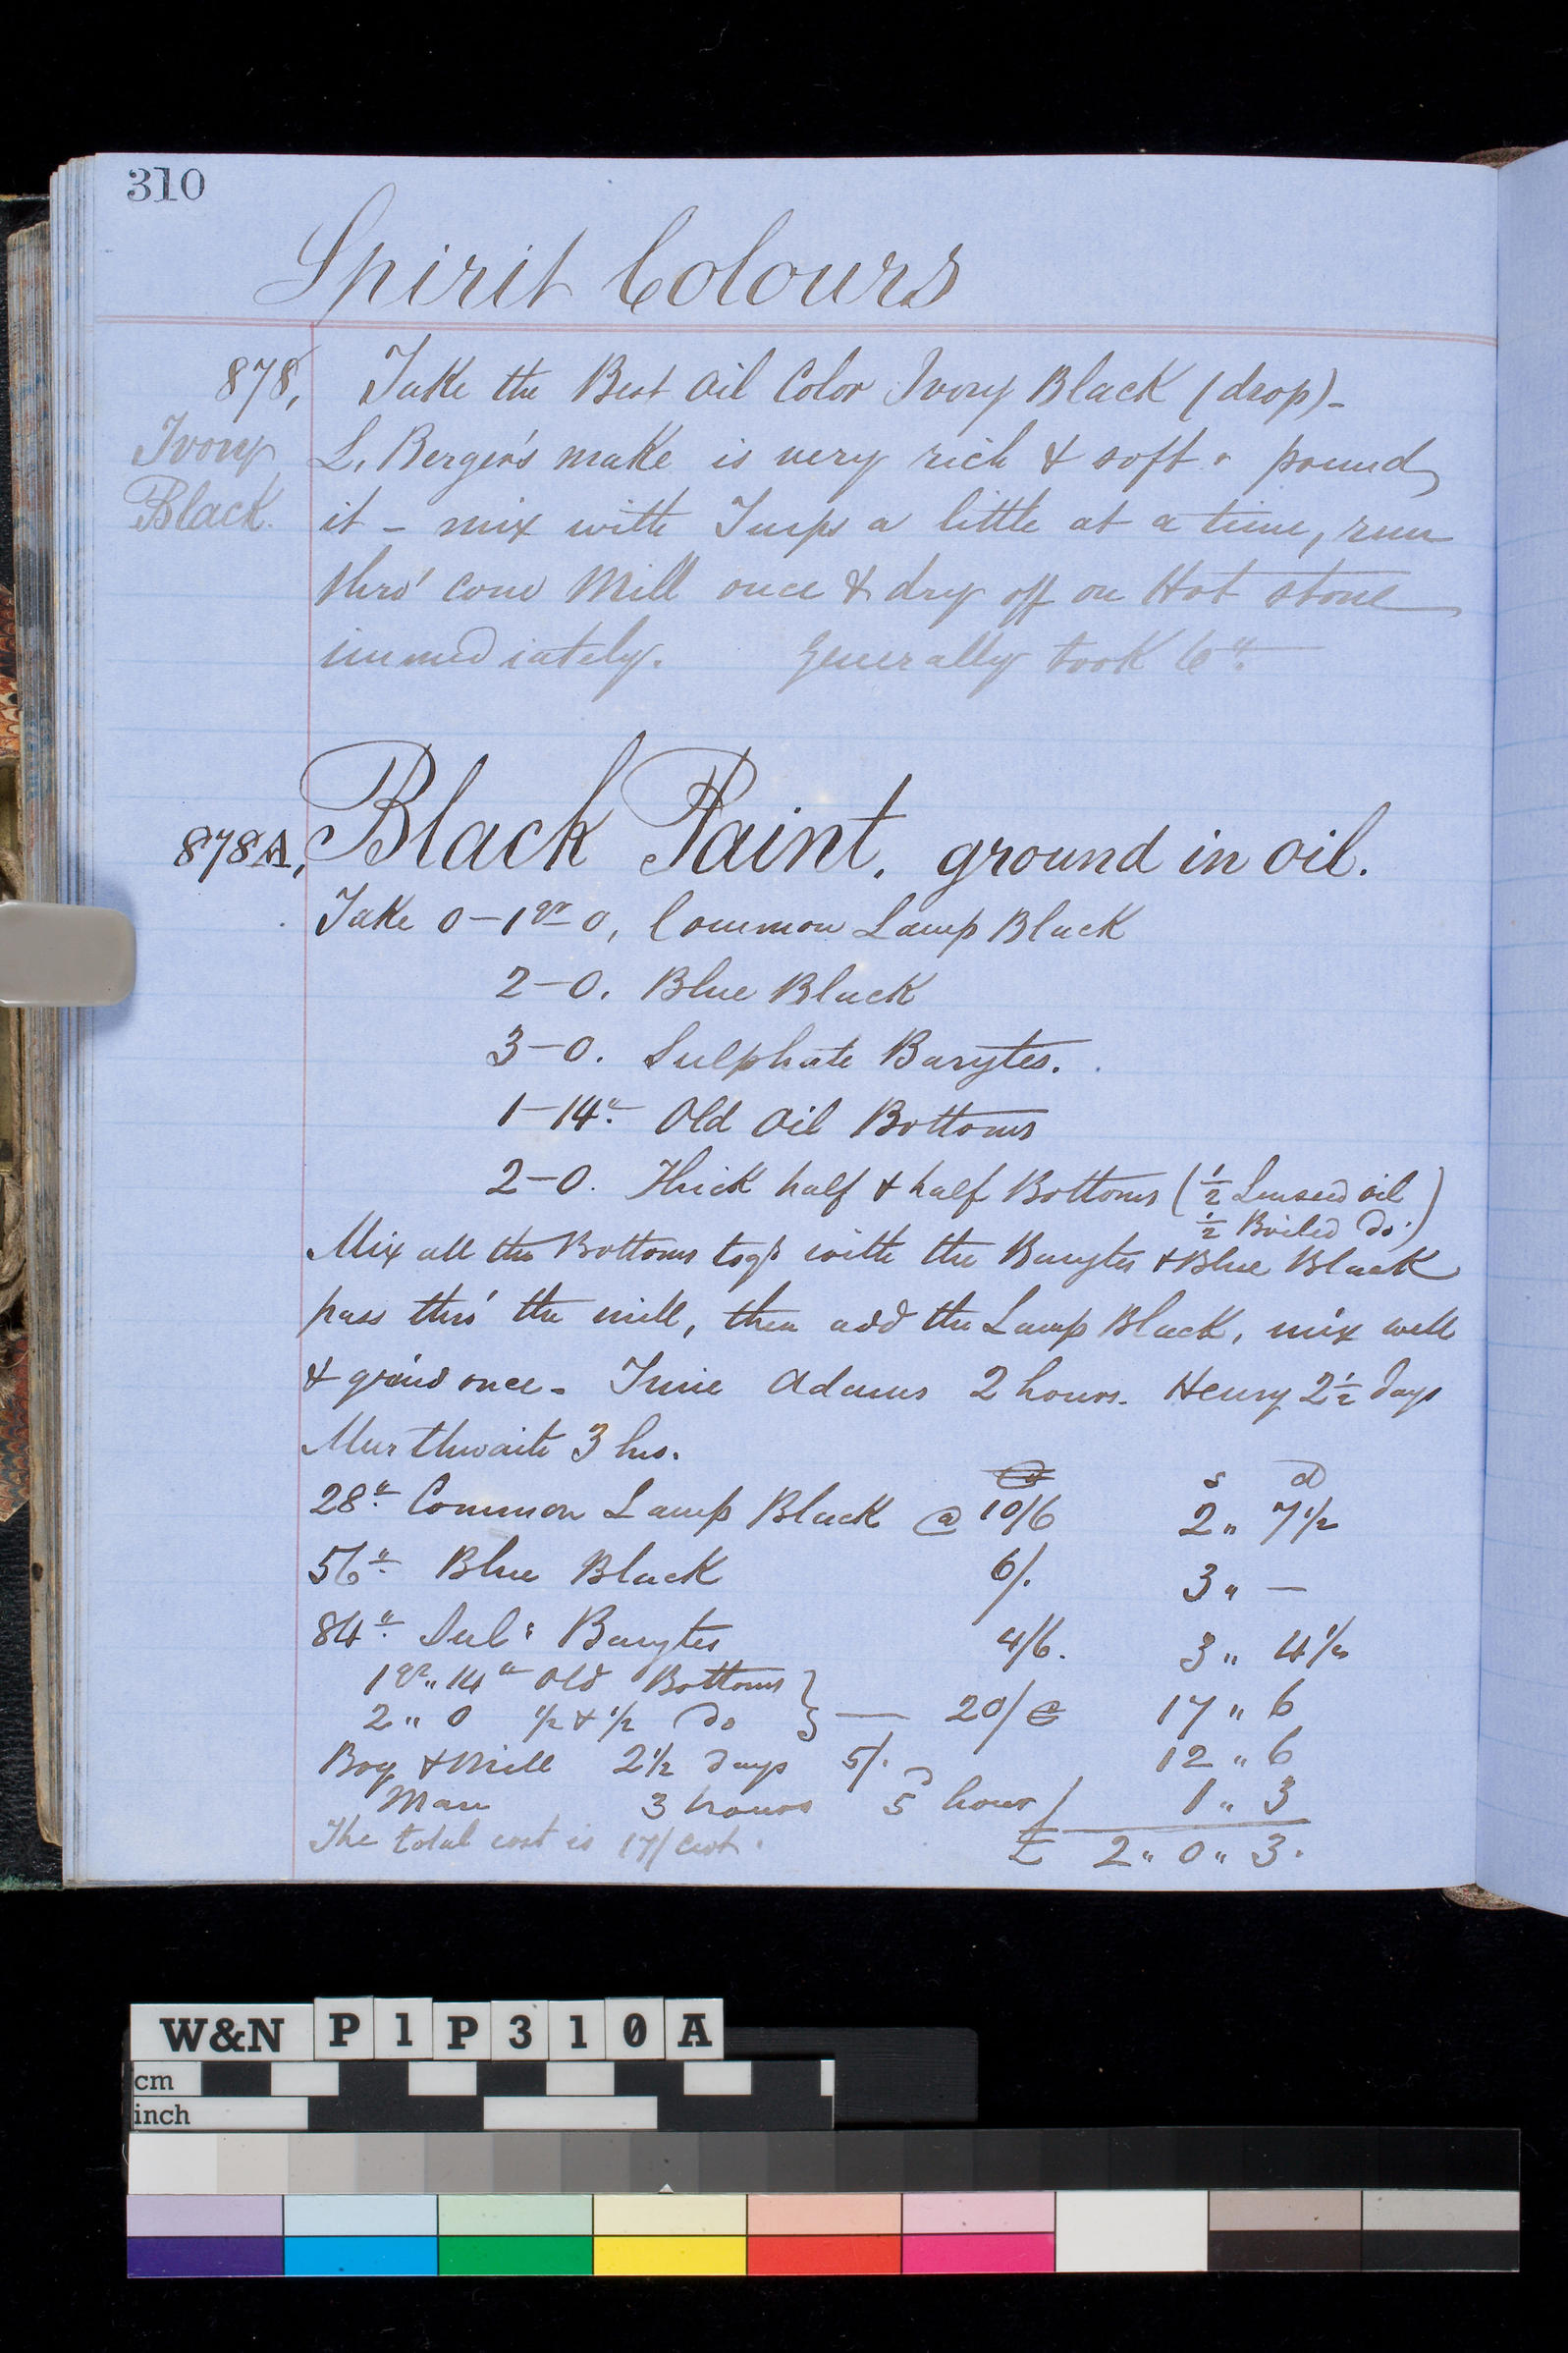 310
Spirit Colours
878,
Ivory
Black.
Take the Best Oil Color Ivory Black (drop) -
L. Berger's make is very rich & soft. pound
it - mix with Turps a little at a time, run
thro' cone Mill once & dry off on Hot stone
immediately. Generally took 6 lb.
878A, Black Paint, ground in oil.
Take 0-1 qr-0, Common Lamp Black
2-0. Blue Black
3-0. Sulphate Barytes.
1-14 lb Old Oil Bottoms
2-0. Thick half & half Bottoms (½ Linseed oil
½ Boiled Do.)
Mix all the Bottoms togr with the Barytes & Blue Black
pass thro' the mill, then add the Lamp Black, mix well
& grind once - Time Adams 2 hours. Henry 2½ days
Murthwaite 3 hrs.
s d
28 lb Common Lamp Black @ 10/6 2 " 7½
56 lb Blue Black 6/. 3 " —
84 lb Sul: Barytes 4/6. 3 " 4½
1 qr " 14 lb Old Bottoms }
2 " 0 ½ & ½ Do } — 20/ 17 " 6
Boy & Mill 2½ days 5/. 12 " 6
Man 3 hours 5d hour / 1 " 3
The total cost is 17/ cwt. £ 2 " 0 " 3.
W&N P1P310A
cm
inch